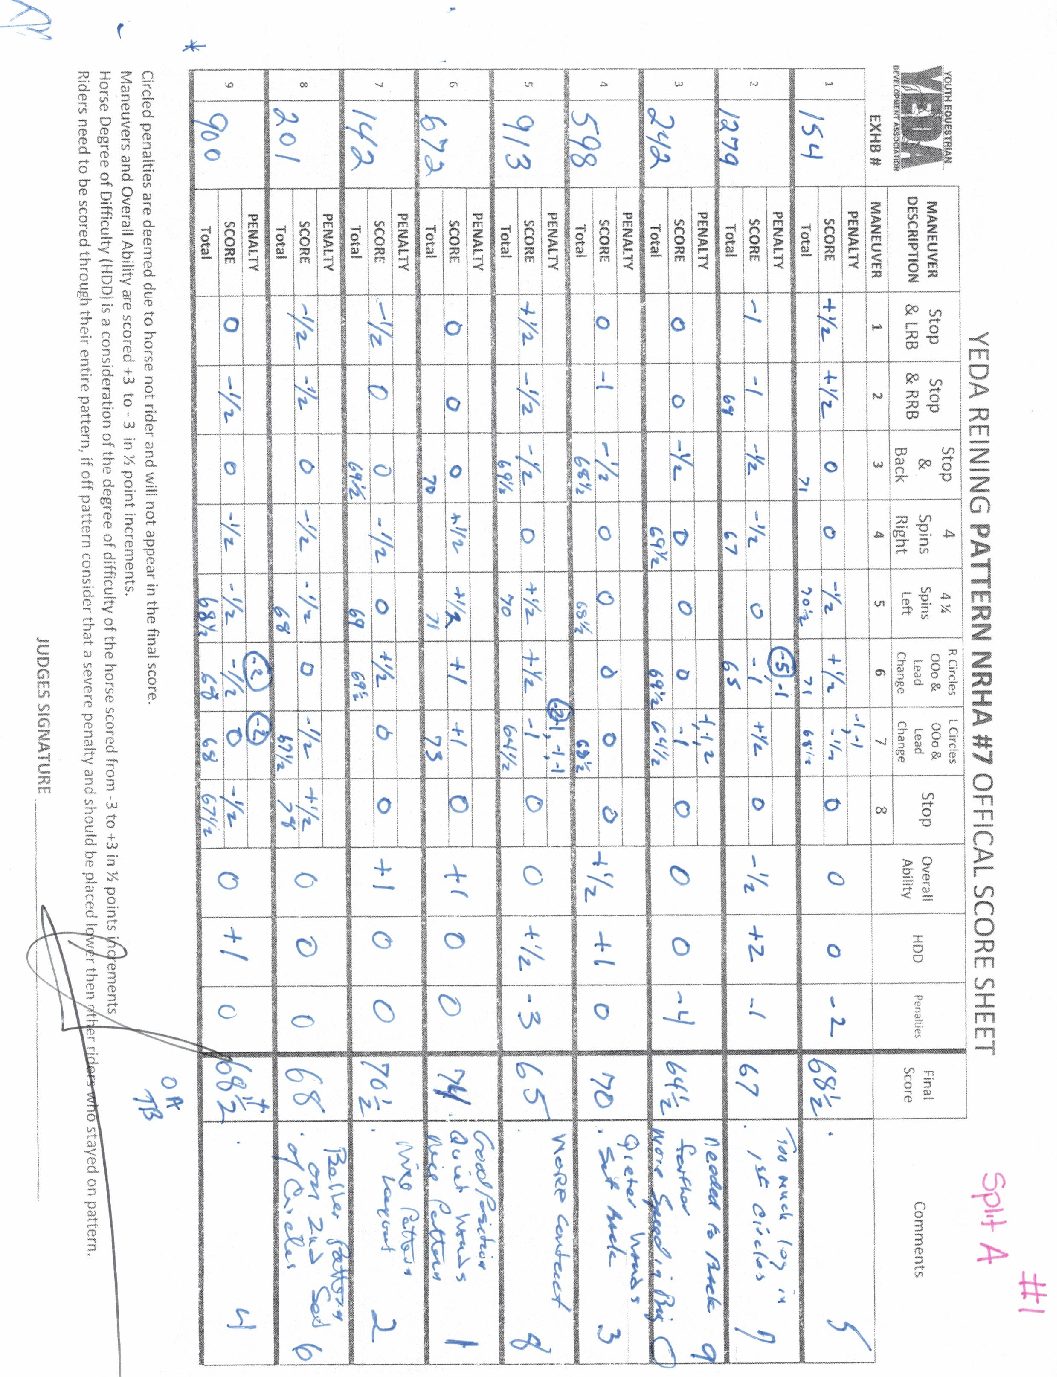 #1
Split A
YEDA REINING PATTERN NRHA #7 OFFICAL SCORE SHEET
YOUTH EQUESTRIAN
YEDA
DEVELOPMENT ASSOCIATION
EXHB # MANEUVER DESCRIPTION Stop & LRB Stop & RRB Stop & Back 4 Spins Right 4 ¼ Spins Left R Circles OOo & Lead Change L Circles OOo & Lead Change Stop Overall Ability HDD Penalties Final Score Comments
MANEUVER 1 2 3 4 5 6 7 8
1 154 PENALTY -1, -1
SCORE +1/2 +1/2 0 0 -1/2 +1/2 -1/2 0 0 0 -2 68½ 5
Total 71 70½ 71 68½
2 1279 PENALTY -5, -1
SCORE -1 -1 -1/2 -1/2 0 -1 +1/2 0 -1/2 +2 -1 67 Too much leg in 1st circles 7
Total 68 67 65
3 242 PENALTY -1, -1, 2
SCORE 0 0 -1/2 0 0 0 -1 0 0 0 -4 64½ Needed to Back further More Speed in Big O 9
Total 69½ 69½ 64½
4 598 PENALTY
SCORE 0 -1 -1/2 0 0 0 0 0 +1/2 +1 0 70 Quieter hands Sit Back 3
Total 68½ 68½ 68½
5 913 PENALTY -2, -1, -1, -1
SCORE +1/2 -1/2 -1/2 0 +1/2 +1/2 -1 0 0 +1/2 -3 65 More contact 8
Total 69½ 70 64½
6 672 PENALTY
SCORE 0 0 0 +1/2 +1/2 +1 +1 0 +1 0 0 74 Good Position Quiet Hands Nice Pattern 1
Total 70 71 73
7 142 PENALTY
SCORE -1/2 0 0 -1/2 0 +1/2 0 0 +1 0 0 70½ Nice Pattern Layout 2
Total 69½ 69 69½
8 201 PENALTY
SCORE -1/2 -1/2 0 -1/2 -1/2 0 -1/2 +1/2 0 0 0 68 Better Pattern on 2nd Set of Circles 6
Total 68 67½
* 9 900 PENALTY -2 -2
SCORE 0 -1/2 0 -1/2 -1/2 -1/2 0 -1/2 0 +1 0 68½+ 4
Total 68½ 68 68 67½
OA
TB
Circled penalties are deemed due to horse not rider and will not appear in the final score.
Maneuvers and Overall Ability are scored +3 to - 3 in ½ point increments.
Horse Degree of Difficulty (HDD) is a consideration of the degree of difficulty of the horse scored from -3 to +3 in ½ points increments
Riders need to be scored through their entire pattern, if off pattern consider that a severe penalty and should be placed lower then other riders who stayed on pattern.
JUDGES SIGNATURE